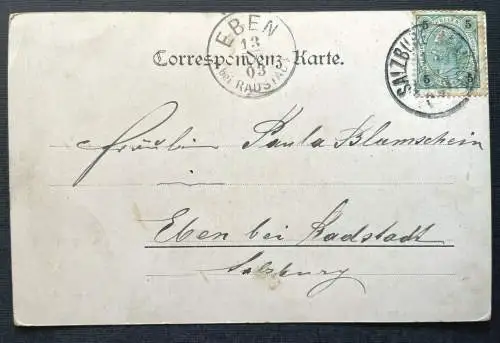 EBEN
13
03
bei RADSTADT
Correspondenz Karte.
SALZBU
5 5
5 5
Fräulein Paula Blumschein
in
Eben bei Radstadt
Salzburg